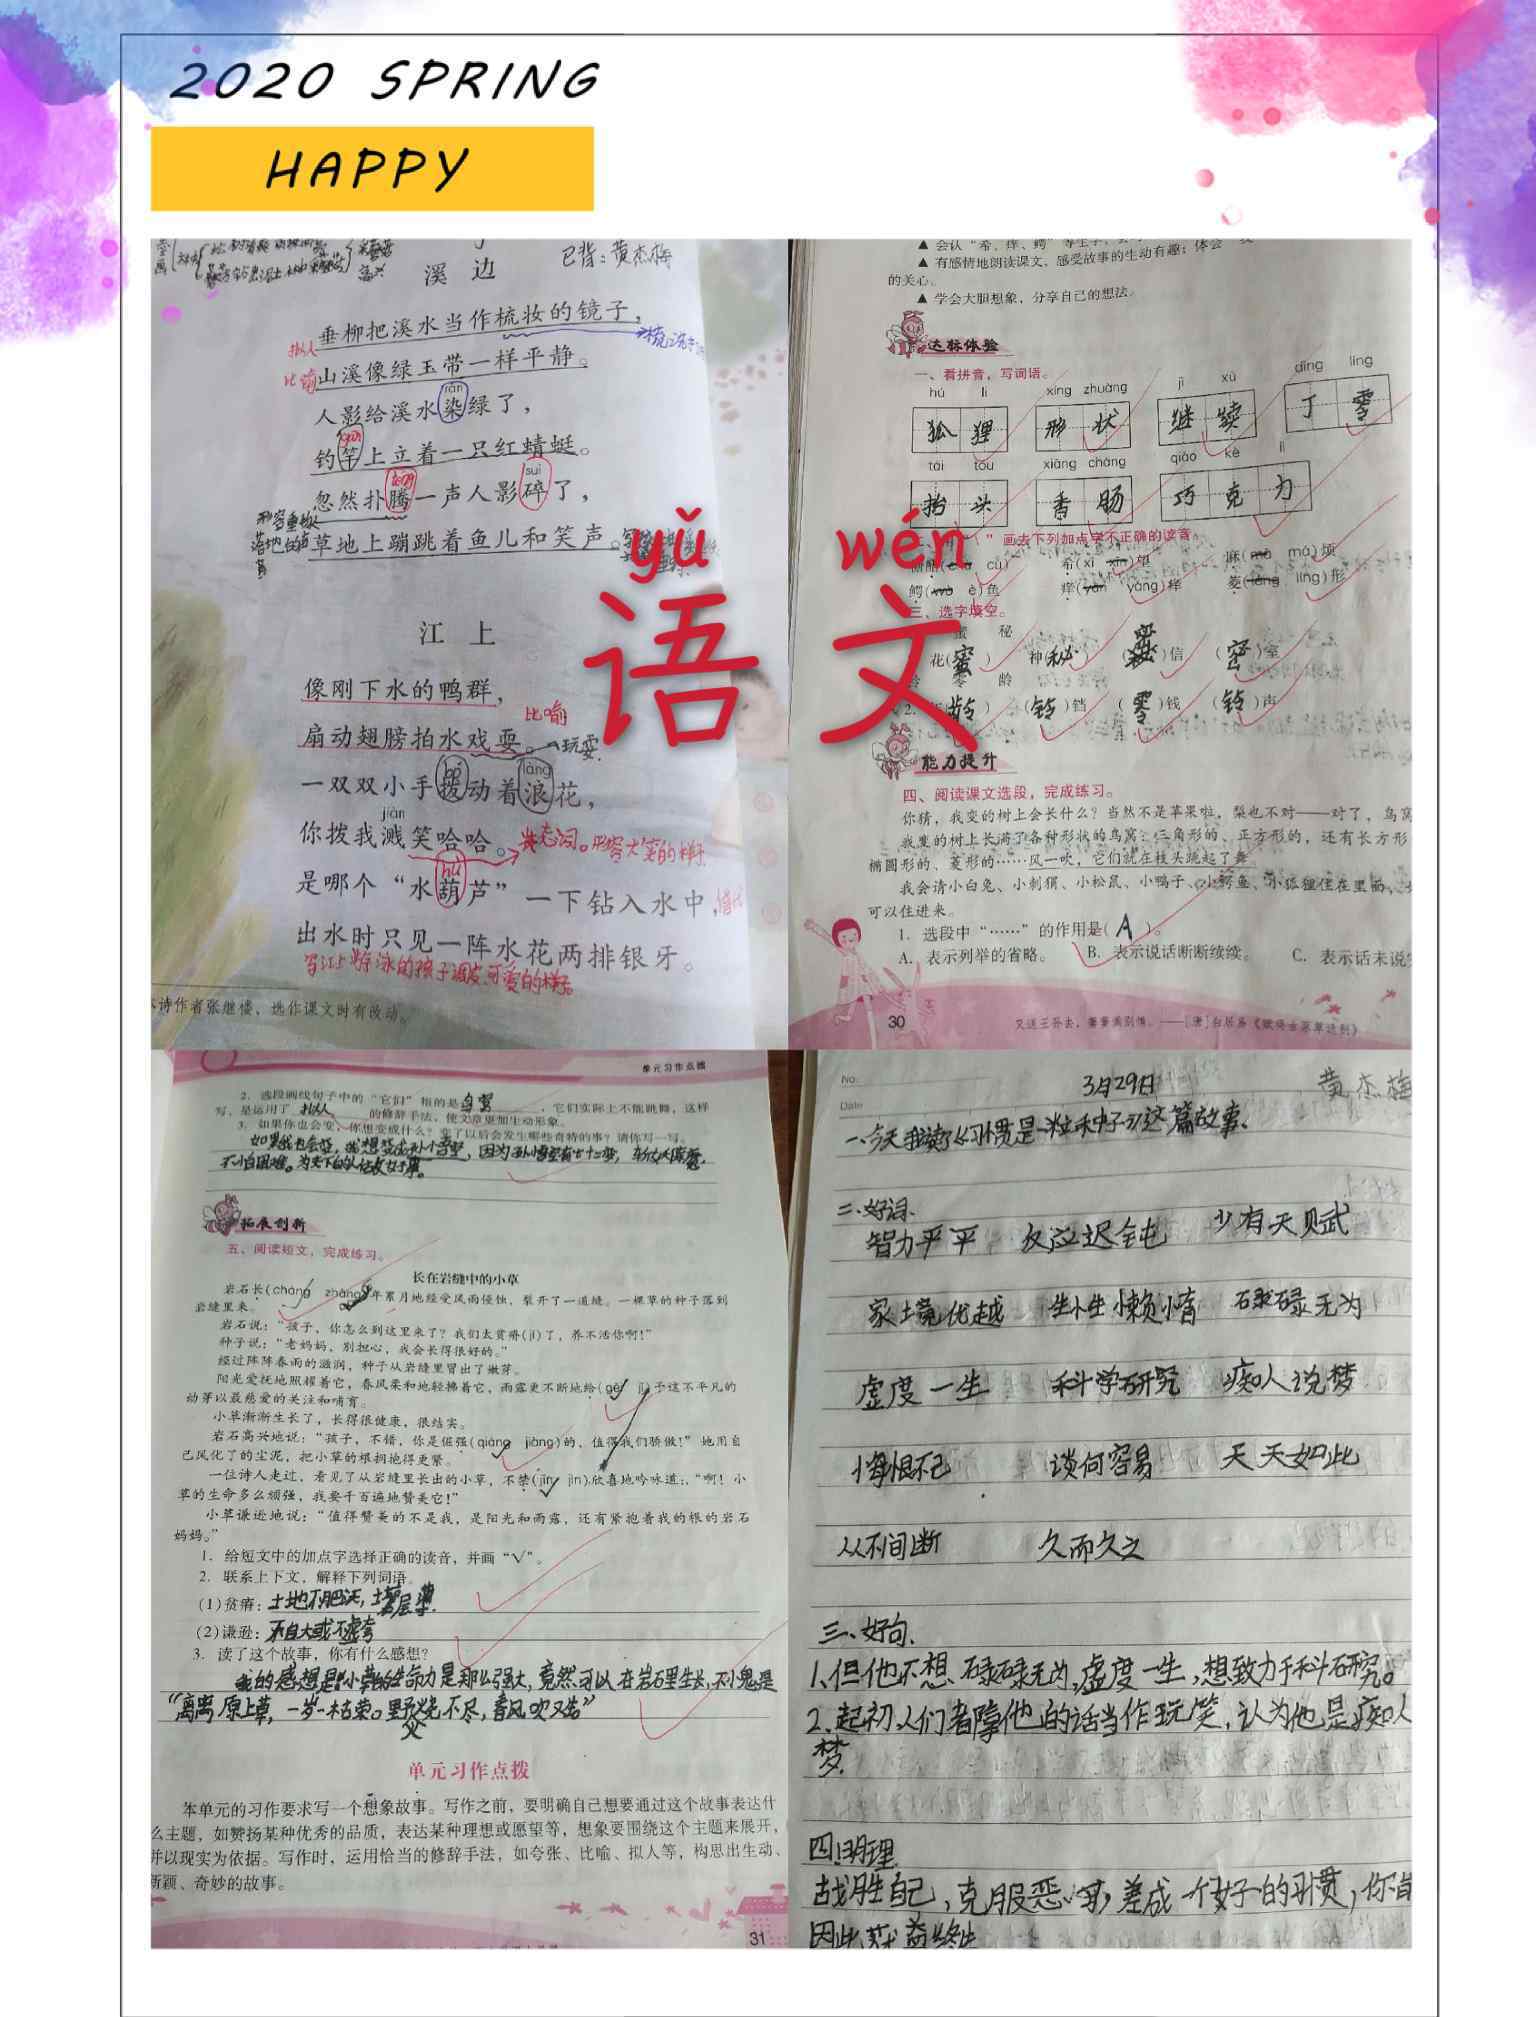 2020 SPRING
HAPPY
yǔ wén
语文
溪 边
已背：黄杰梅
垂柳把溪水当作梳妆的镜子，
拟人
山溪像绿玉带一样平静。
比喻
rǎn
人影给溪水染绿了，
gān
钓竿上立着一只红蜻蜓。
suì
忽然扑腾一声人影碎了，
草地上蹦跳着鱼儿和笑声。
江 上
像刚下水的鸭群，
比喻
扇动翅膀拍水戏耍。
玩耍
bō làng
一双双小手拨动着浪花，
jiàn
你拨我溅笑哈哈。
hú
是哪个“水葫芦”一下钻入水中，
出水时只见一阵水花两排银牙。
本诗作者张继楼，选作课文时有改动。
▲ 有感情地朗读课文，感受故事的生动有趣；体会
的关心。
▲ 学会大胆想象，分享自己的想法。
达标体验
一、看拼音，写词语。
hú li xíng zhuàng jì xù dīng líng
狐狸 形状 继续 丁零
tái tóu xiāng cháng qiǎo kè lì
抬头 香肠 巧克力
” 画去下列加点字不正确的读音。
三、选字填空。
蜜 秘
花(蜜) 神(秘) (密)信 (密)室
(铃)铛 (零)钱 (铃)声
能力提升
四、阅读课文选段，完成练习。
你猜，我变的树上会长什么？当然不是苹果啦，梨也不对——对了，鸟窝
我变的树上长满了各种形状的鸟窝：三角形的、正方形的，还有长方形
椭圆形的、菱形的……风一吹，它们就在枝头跳起了舞。
我会请小白兔、小刺猬、小松鼠、小鸭子、小鳄鱼、小狐狸住在里面，
可以住进来。
1. 选段中“……”的作用是( A )。
A. 表示列举的省略。 B. 表示说话断断续续。 C. 表示话未说
30
又送王孙去，萋萋满别情。——[唐]白居易《赋得古原草送别》
单元习作点拨
2. 选段画线句子中的“它们”指的是鸟窝，它们实际上不能跳舞，这样
写，是运用了拟人的修辞手法，使文章更加生动形象。
3. 如果你也会变，你想变成什么？变了以后会发生哪些奇特的事？请你写一写。
拓展创新
五、阅读短文，完成练习。
长在岩缝中的小草
岩石长(cháng zhǎng)年累月地经受风雨侵蚀，裂开了一道缝。一棵草的种子落到
岩缝里来。
岩石说：“孩子，你怎么到这里来了？我们太贫瘠(jí)了，养不活你啊！”
种子说：“老妈妈，别担心，我会长得很好的。”
经过阵阵春雨的滋润，种子从岩缝里冒出了嫩芽。
阳光爱抚地照耀着它，春风柔和地轻拂着它，雨露更不断地给(gěi jǐ)予这不平凡的
幼芽以最慈爱的关注和哺育。
小草渐渐生长了，长得很健康，很结实。
岩石高兴地说：“孩子，不错，你是倔强(qiáng jiàng)的，值得我们骄傲！”她用自
己风化了的尘泥，把小草的根拥抱得更紧。
一位诗人走过，看见了从岩缝里长出的小草，不禁(jīn jìn)欣喜地吟咏道：“啊！小
草的生命多么顽强，我要千百遍地赞美它！”
小草谦逊地说：“值得赞美的不是我，是阳光和雨露，还有紧抱着我的根的岩石
妈妈。”
1. 给短文中的加点字选择正确的读音，并画“√”。
2. 联系上下文，解释下列词语。
(1)贫瘠：土地不肥沃，土壤层薄。
(2)谦逊：不自大或不虚夸
3. 读了这个故事，你有什么感想？
我的感想是：小草的生命力是那么强大，竟然可以在岩石里生长，不愧是
“离离原上草，一岁一枯荣。野火烧不尽，春风吹又生”
单元习作点拨
本单元的习作要求写一个想象故事。写作之前，要明确自己想要通过这个故事表达什
么主题，如赞扬某种优秀的品质，表达某种理想或愿望等，想象要围绕这个主题来展开，
并以现实为依据。写作时，运用恰当的修辞手法，如夸张、比喻、拟人等，构思出生动、
新颖、奇妙的故事。
31
No.
Date
3月29日
黄杰梅
一、今天我读了《习惯是一粒种子》这篇故事。
二、好词
智力平平 反应迟钝 少有天赋
家境优越 生性懒惰 碌碌无为
虚度一生 科学研究 痴人说梦
悔恨不已 谈何容易 天天如此
从不间断 久而久之
三、好句
1、但他不想碌碌无为，虚度一生，想致力于科研究。
2、起初，人们都障他的话当作玩笑，认为他是痴人
梦。
四、明理
战胜自己，克服恶习，养成一个好的习惯，你
因此获益终生